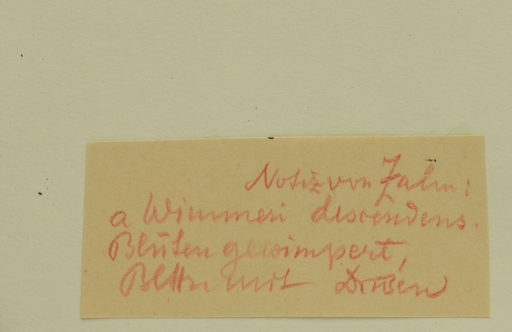 Notiz von Zahn:
a Wimmeri descendens.
Blüten gewimpert,
Blttr mit Drüsen